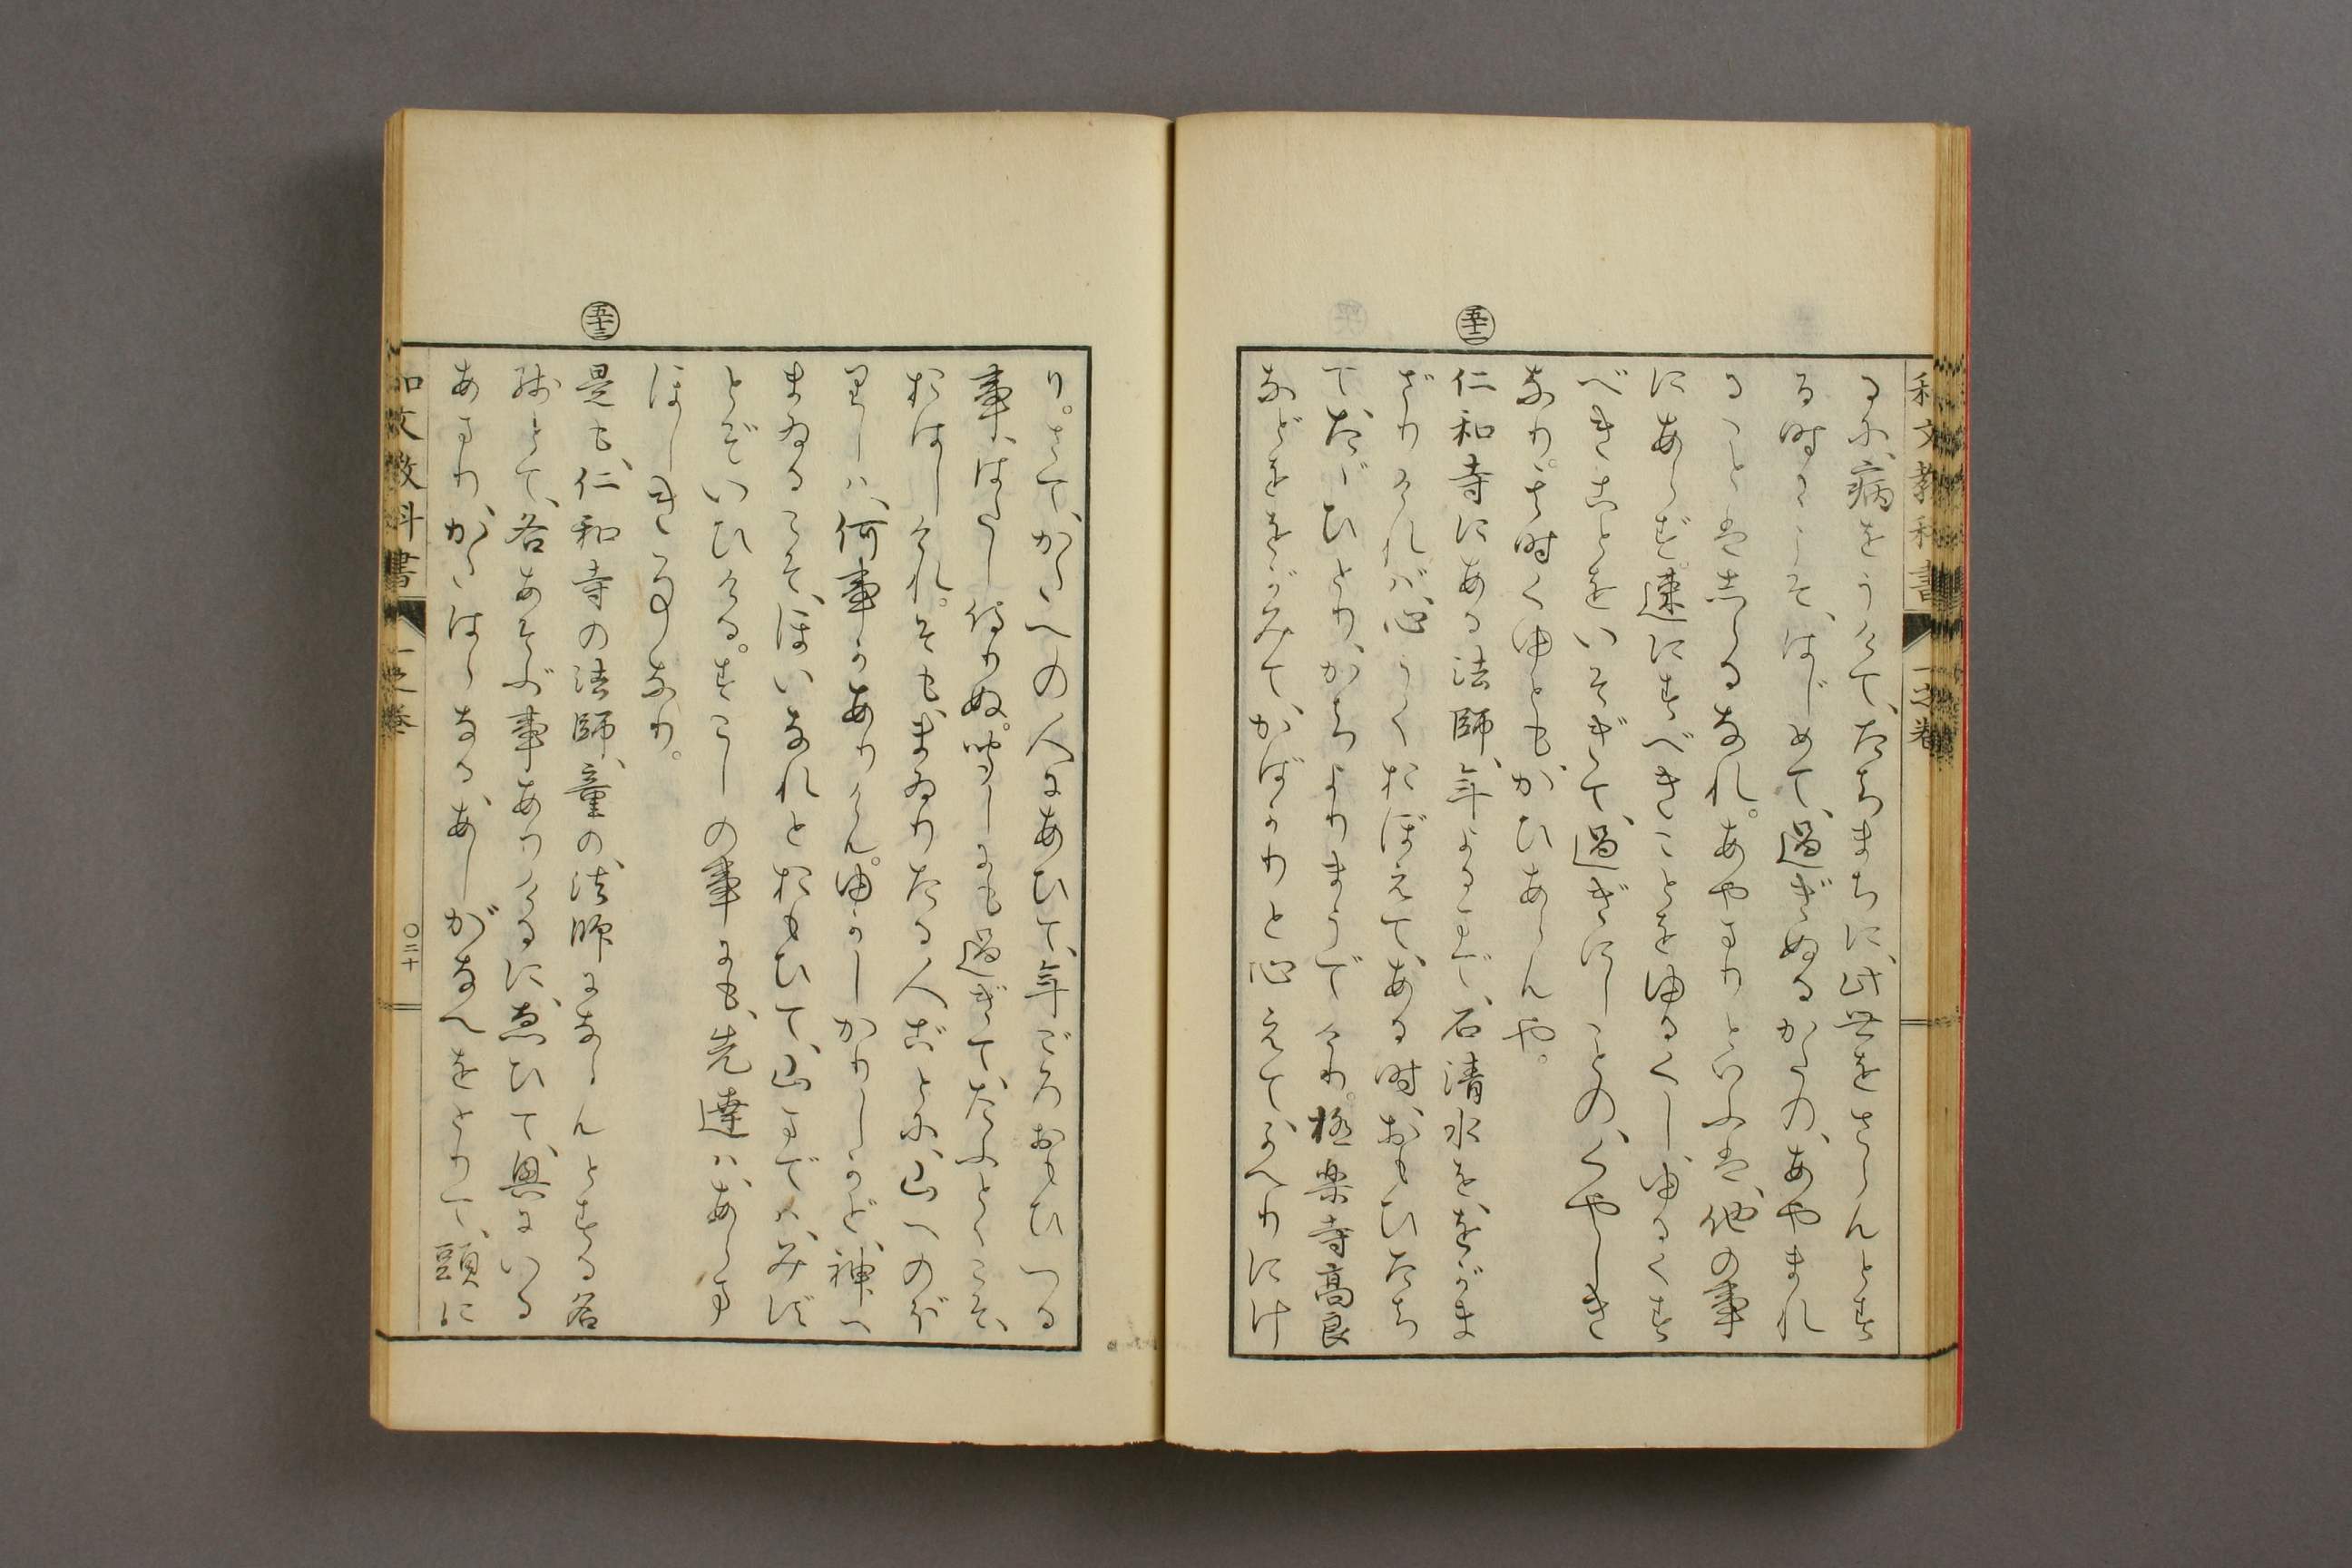 和文教科書 一之巻
るに、病をうけて、たちまちに、此世をさらんとす
る時にこそ、はじめて、過ぎぬるかたの、あやまれ
ることは、志らるなれ。あやまりといふは、他の事
にあらず。速にすべきことをゆるくし、ゆるくす
べきことをいそぎて、過ぎにしことの、くやしき
なり。其時くゆとも、かひあらんや。
五十二
仁和寺にある法師、年よるまで、石清水を、をがま
ざりければ、心うくおぼえて、ある時、おもひたち
て、たゞひとり、かちよりまうでけり。極楽寺高良
などををがみて、かばかりと心えて、かへりにけ
り。さて、かたへの人にあひて、年ごろおもひつる
事、はたし侍りぬ。聞しにも過ぎて、たふとくこそ、
おはしけれ。そも、まゐりたる人ごとに、山へのぼ
りしハ、何事かありけん。ゆかしかりしかど、神へ
まゐるこそ、ほいなれとおもひて、山までハ、みず
とぞいひける。すこしの事にも、先達ハ、あらま
ほしき事なり。
五十三
是も、仁和寺の法師、童の、法師にならんとする名
残とて、各あそぶ事ありけるに、ゑひて、興にいる
あまり、かたはらなる、あしがなへをとりて、頭に
和文教科書 一之巻 〇二十